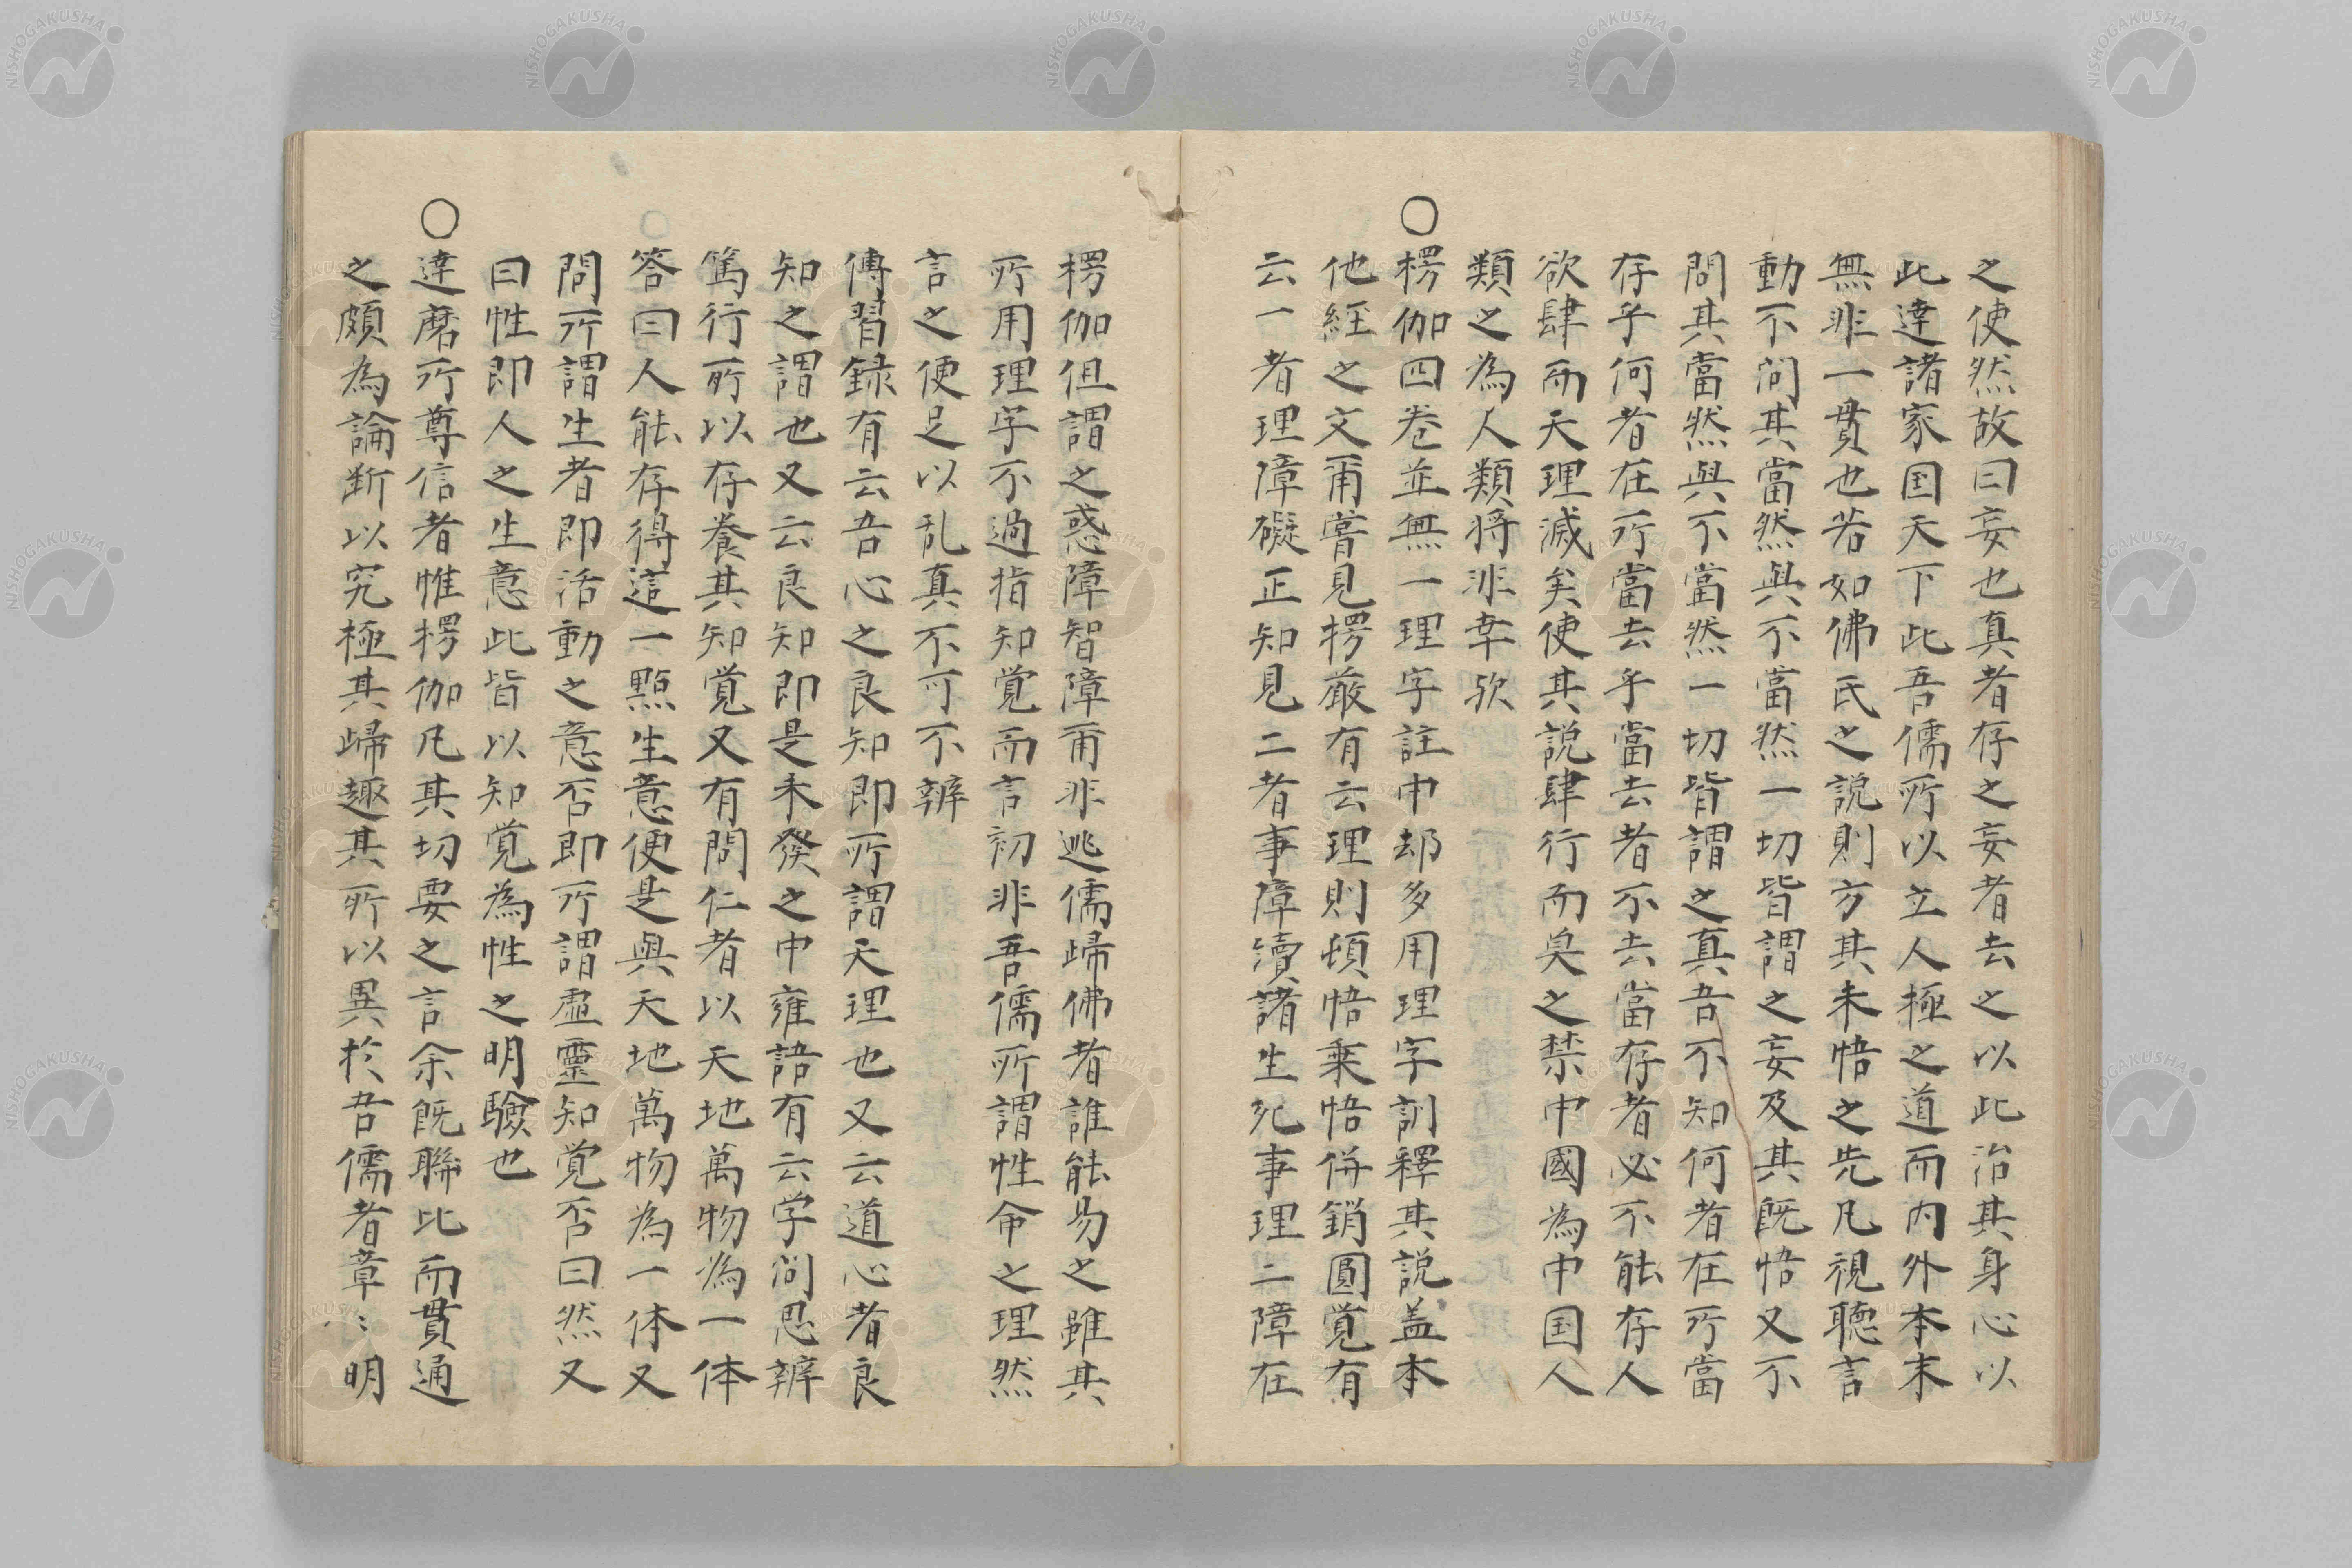 之使然故曰妄也真者存之妄者去之以此治其身心以
此達諸家国天下此吾儒所以立人極之道而内外本末
無非一貫也若如佛氏之説則方其未悟之先凡視聴言
動不問其當然與不當然一切皆謂之妄及其既悟又不
問其當然與不當然一切皆謂之真吾不知何者在所當
存乎何者在所當去乎當去者不去當存者必不能存人
欲肆而天理滅矣使其説肆行而莫之禁中國為中国人
類之為人類将非幸欤
○楞伽四巻並無一理字註中却多用理字訓釋其説盖本
他經之文爾甞見楞厳有云理則頓悟乗悟併銷圓覚有
云一者理障礙正知見二者事障續諸生死事理二障在
楞伽但謂之惑障智障爾非逃儒帰佛者誰能易之雖其
所用理字不過指知覚而言初非吾儒所謂性命之理然
言之便足以乱真不可不辨
傳習録有云吾心之良知即所謂天理也又云道心者良
知之謂也又云良知即是未發之中雍語有云学問思辨
篤行所以存養其知覚又有問仁者以天地萬物為一体
答曰人能存得這一點生意便是與天地萬物為一体又
問所謂生者即活動之意否即所謂虚靈知覚否曰然又
曰性即人之生意此皆以知覚為性之明驗也
○達磨所尊信者惟楞伽凡其切要之言余既聯比而貫通
之頗為論断以究極其帰趣其所以異於吾儒者章〻明
NISHOGAKUSHA